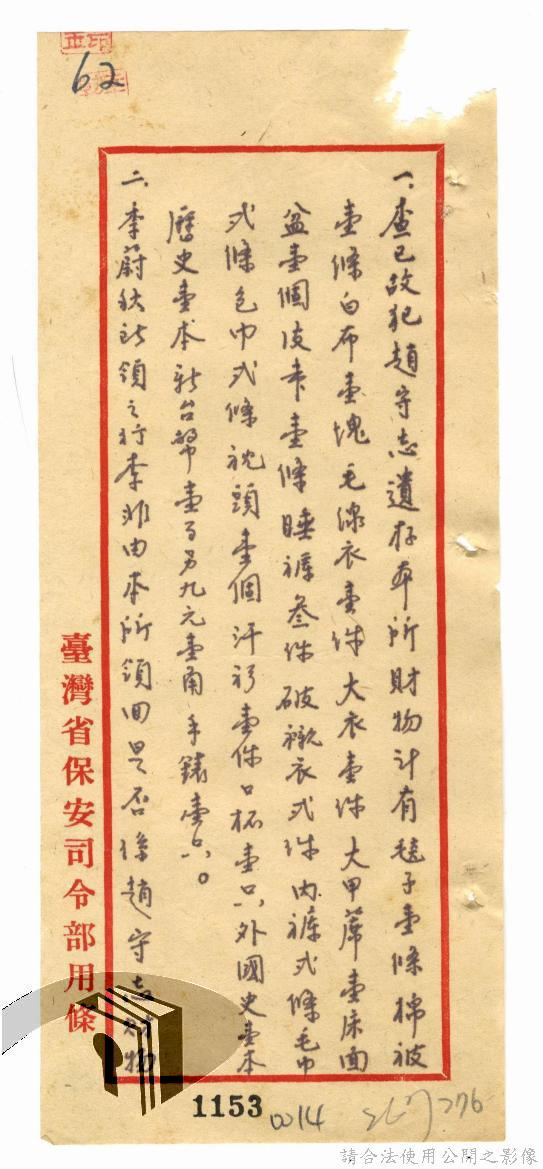 62
一、查已故犯趙守志遺存本所財物計有毯子壹條棉被
壹條白布壹塊毛線衣壹件大衣壹件大甲蓆壹床面
盆壹個皮帶壹條睡褲叁件破襯衣弍件內褲弍條毛巾
弍條包巾弍條枕頭壹個汗衫壹件口杯壹只外國史壹本
歷史壹本新台幣壹百另九元壹角手錶壹只。
二、李蔚秋所領之行李非由本所領回是否係趙守志財物
臺灣省保安司令部用條
1153
0014
276
請合法使用公開之影像